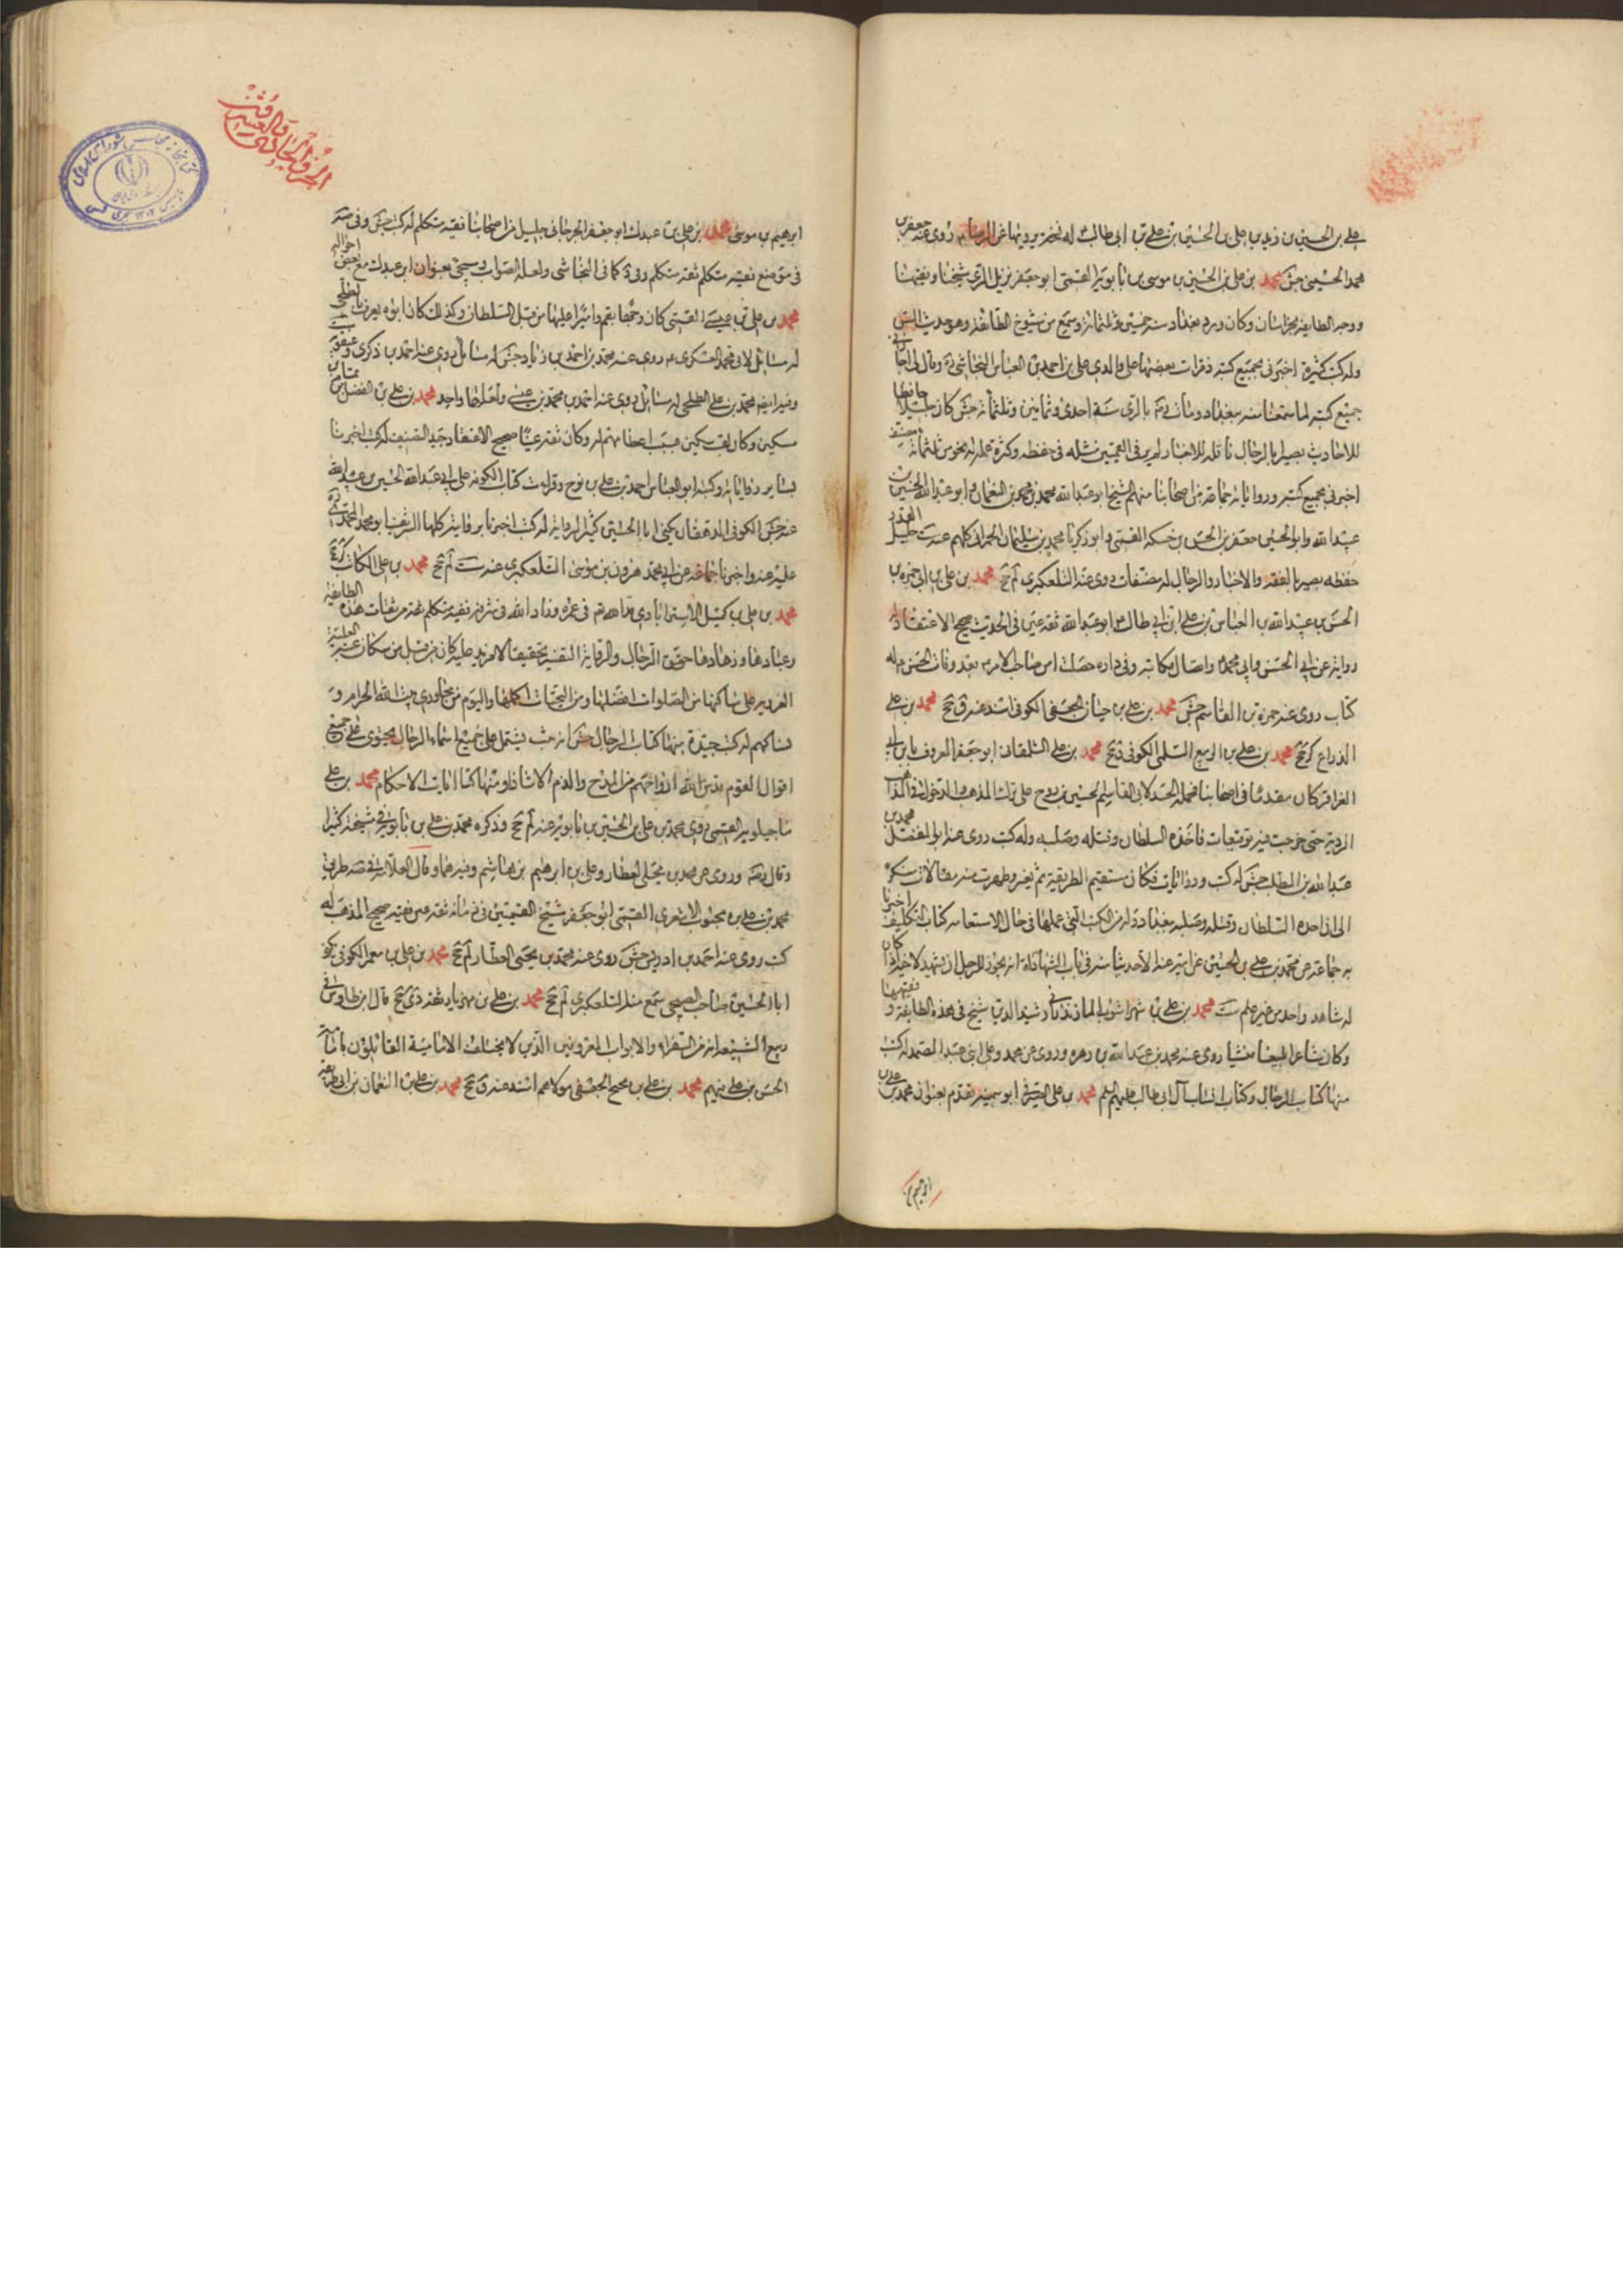 علي بن الحسين بن زيد بن علي بن الحسين بن علي بن ابي طالب له نسخة يرويها عن الرضا ع روى عنه جعفر بن
محمد الحسيني جش محمد بن علي بن الحسين بن موسى بن بابويه القمي ابو جعفر نزيل الري شيخنا وفقيهنا
ووجه الطايفة بخراسان وكان ورد بغداد سنة خمس وثلثمائة وسمع من شيوخ الطائفة وهو حدث السن
وله كتب كثيرة اخبرني بجميع كتبه وقرات بعضها على والدي علي بن احمد بن العباس النجاشي ره وقال لي اجازني
جميع كتبه لما سمعنا منه ببغداد ومات ره بالري سنة احدى وثمانين وثلثمائة جش كان جليلا حافظا
للاحاديث بصيرا بالرجال ناقلا للاخبار لم ير في القميين مثله في حفظه وكثرة علمه له نحو من ثلثمائة مصنف
اخبرني بجميع كتبه ورواياته جماعة من اصحابنا منهم الشيخ ابو عبد الله محمد بن محمد بن النعمان وابو عبد الله الحسين بن
عبيد الله وابو الحسين جعفر بن الحسن بن حسكه القمي وابو زكريا محمد بن سليمان الحمراني كلهم عنه ست جليل القدر
حفظه بصير بالفقه والاخبار والرجال له مصنفات روى عنه التلعكبري لم جخ محمد بن علي بن ابي حمزة بن
الحسن بن عبيد الله بن العباس بن علي بن ابي طالب ع ابو عبد الله ثقة عين في الحديث صحيح الاعتقاد له
رواية عن ابي الحسن وابي محمد ع واتصال مكاتبة وفي داره حصلت ام صاحب الامر ع بعد وفاة الحسن ع له
كتاب روى عنه حمزة بن القاسم جش محمد بن علي بن حيان الجعفي الكوفي اسند عنه ق جخ محمد بن علي
الذراع كر جخ محمد بن علي بن الربيع السلمي الكوفي ق جخ محمد بن علي الشلمغاني ابو جعفر المعروف بابن ابي
العزاقر كان متقدما في اصحابنا فحمله الحسد لابي القاسم الحسين بن روح على ترك المذهب والدخول في المذاهب
الردية حتى خرجت فيه توقيعات فاخذه السلطان وقتله وصلبه وله كتب روى عنه ابو المفضل محمد بن
عبد الله بن المطلب جش له كتب وروايات فكان مستقيم الطريقة ثم تغير وظهرت منه مقالات منكرة
الى ان اخذه السلطان وقتله وصلبه ببغداد وله من الكتب التي عملها في حال الاستقامة كتاب التكليف اخبرنا
به جماعة عن محمد بن علي بن الحسين عن ابيه عنه الا حديثا منه في باب الشهادات انه يجوز للرجل ان يشهد لاخيه اذا كان
له شاهد واحد من غير علم ست محمد بن علي بن شهراشوب المازندراني رشيد الدين شيخ في هذه الطايفة وفقيهها
وكان شاعرا بليغا منشيا روى عنه محمد بن عبد الله بن زهره وروى عن محمد وعلي ابني عبد الصمد له كتب
منها كتاب الرجال وكتاب انساب آل ابي طالب عليهم السلم محمد بن علي الصيرفي ابو سمينه تقدم بعنوان محمد بن علي بن
ابرهيم بن
الجزؤ الحادي والعشرون
ابرهيم بن موسى محمد بن علي بن عبدك ابو جعفر الجرجاني جليل من اصحابنا فقيه متكلم له كتب جش وفي صه
في موضع فقيه متكلم ثقة متكلم وفي د كما في النجاشي ولعله الصواب وسيجئ بعنوان ابن عبدك مع بعض احواله
محمد بن علي بن عيسى القمي كان وجها بقم واميرا عليها من قبل السلطان وكذلك كان ابوه يعرف بالطلحي
له مسائل لابي محمد العسكري ع روى عنه محمد بن احمد بن زياد جش له مسائل روى عنه احمد بن ذكرى وغيره ست
وفيه ايضا محمد بن علي الطلحي له مسائل روى عنه احمد بن محمد بن عيسى ولعلهما واحد محمد بن علي بن الفضل بن تمام بن
سكين وكان لقب سكين بسبب اعظامهم له وكان ثقة عينا صحيح الاعتقاد جيد التصنيف له كتب اخبرنا
بسائر رواياته وكتبه ابو العباس احمد بن علي بن نوح وقرات كتاب الكوفة على ابي عبد الله الحسين بن عبيد الله
عنه جش الكوفي الدهقان يكنى ابا الحسين كثير الرواية له كتب اخبرنا برواياته كلها الشريف ابو محمد المحمدي ره
عليه عنه واخبرنا جماعة عن ابي محمد هرون بن موسى التلعكبري عنه ست لم جخ محمد بن علي الكاتب
محمد بن علي بن كميل الاسترابادي مد الله تعالى في عمره وزاد الله في شرفه فقيه متكلم ثقة من ثقات هذه الطايفة
وعبادها وزهادها حقق الرجال والرواية والتفسير تحقيقا لا مزيد عليه كان من قبل من سكان عتبة العلية
الغروية على ساكنها من الصلوات افضلها ومن التحيات اكملها واليوم من مجاوري بيت الله الحرام و
نساكهم له كتب جيدة منها كتاب الرجال حسن الترتيب يشتمل على جميع اسماء الرجال يحتوي على جميع
اقوال القوم قدس الله ارواحهم من المدح والذم الا شاذا ومنها كتاب ايات الاحكام محمد بن علي
ماجيلويه القمي روى محمد بن علي بن الحسين بن بابويه عنه لم جخ وذكره محمد بن علي بن بابويه في مشيخته كثيرا
وقال رضه وروى عن محمد بن يحيى العطار وعلي بن ابرهيم بن هاشم وغيرهما وقال العلامة في صه طريق
محمد بن علي بن محبوب الاشعري القمي ابو جعفر شيخ القميين في زمانه ثقة عين فقيه صحيح المذهب له
كتب روى عنه احمد بن ادريس جش روى عنه محمد بن يحيى العطار لم جخ محمد بن علي بن معمر الكوفي يكنى
ابا الحسين صاحب الصبيحي سمع منه التلعكبري لم جخ محمد بن علي بن مهزيار ثقة دي جخ قال ابن طاوس في
ربيع الشيعة انه من السفراء والابواب المعروفين الذين لا يختلف الامامية القائلون بامامة
الحسن بن علي فيهم محمد بن علي بن نجيح الجعفي مولاهم اسند عنه ق جخ محمد بن علي بن النعمان بن ابي طريفة